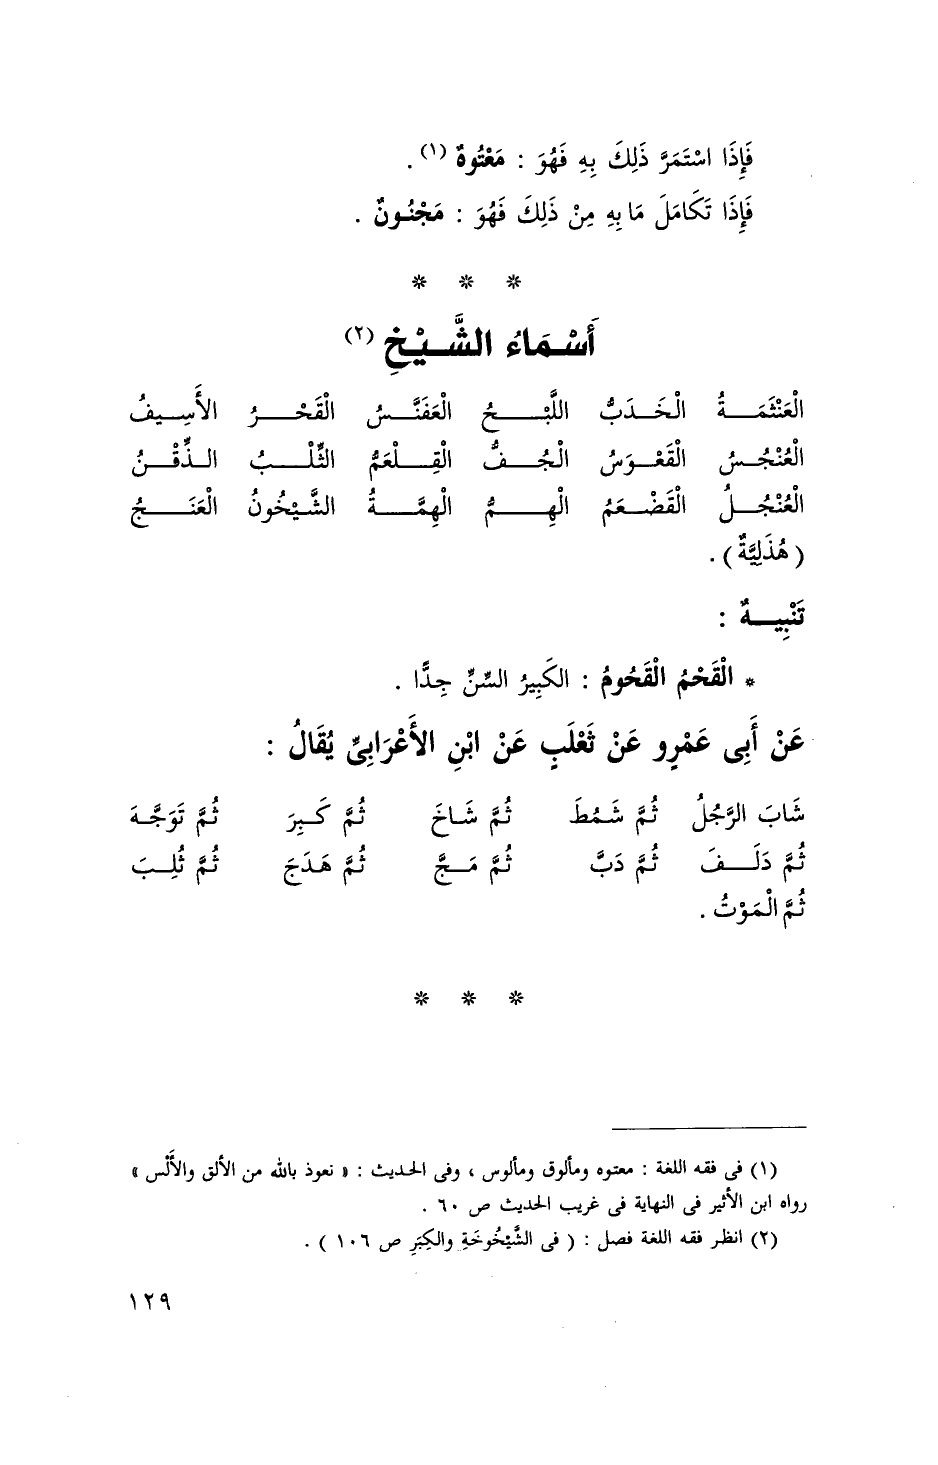 فَإِذَا اسْتَمَرَّ ذَلِكَ بِهِ فَهُوَ : مَعْتُوهٌ (١) .
فَإِذَا تَكَامَلَ مَا بِهِ مِنْ ذَلِكَ فَهُوَ : مَجْنُونٌ .
* * *
أَسْمَاءُ الشَّيْخِ (٢)
الْعَنْثَمَةُ الْخَدَبُّ اللَّبْخُ الْعَفَنَّسُ الْقَحْرُ الأَسِيفُ
الْعُنْجُسُ القَعْوَسُ الْجُفُّ الْقِلْعَمُّ الثِّلْبُ الذِّقْنُ
الْعُنْجُلُ الْقَضْعَمُ الْهِمُّ الْهِمَّةُ الشَّيْخُونُ الْعَنَجُ
( هُذَلِيَّةٌ ) .
تَنْبِيهٌ :
* الْقَحْمُ الْقَحُومُ : الكَبِيرُ السِّنِّ جِدًّا .
عَنْ أَبِى عَمْرٍو عَنْ ثَعْلَبٍ عَنْ ابْنِ الأَعْرَابِىِّ يُقَالُ :
شَابَ الرَّجُلُ ثُمَّ شَمُطَ ثُمَّ شَاخَ ثُمَّ كَبِرَ ثُمَّ تَوَجَّهَ
ثُمَّ دَلَفَ ثُمَّ دَبَّ ثُمَّ مَجَّ ثُمَّ هَدَجَ ثُمَّ ثُلِبَ
ثُمَّ الْمَوْتُ .
* * *
(١) فى فقه اللغة : معتوه ومألوق ومألوس ، وفى الحديث : « نعوذ بالله من الألق والأَلْس »
رواه ابن الأثير فى النهاية فى غريب الحديث ص ٦٠ .
(٢) انظر فقه اللغة فصل : ( فى الشَّيْخُوخَةِ والكِبَرِ ص ١٠٦ ) .
١٢٩